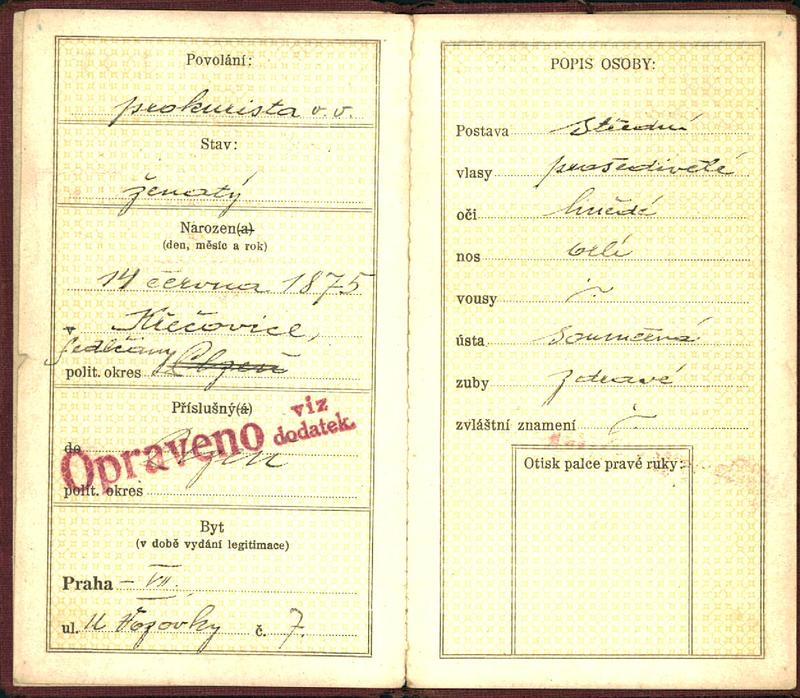 Povolání:
prokurista v. v.
Stav:
ženatý
Narozen(a)
(den, měsíc a rok)
14 června 1875
v Křečovice,
Sedlčany
polit. okres Plzeň
Příslušný(á)
viz
Opraveno dodatek.
do Plzeň
polit. okres
Byt
(v době vydání legitimace)
Praha – VII.
ul. U Vozovky č. 7.
POPIS OSOBY:
Postava střední
vlasy prošedivělé
oči hnědé
nos orlí
vousy
ústa souměrná
zuby zdravé
zvláštní znamení
Otisk palce pravé ruky: